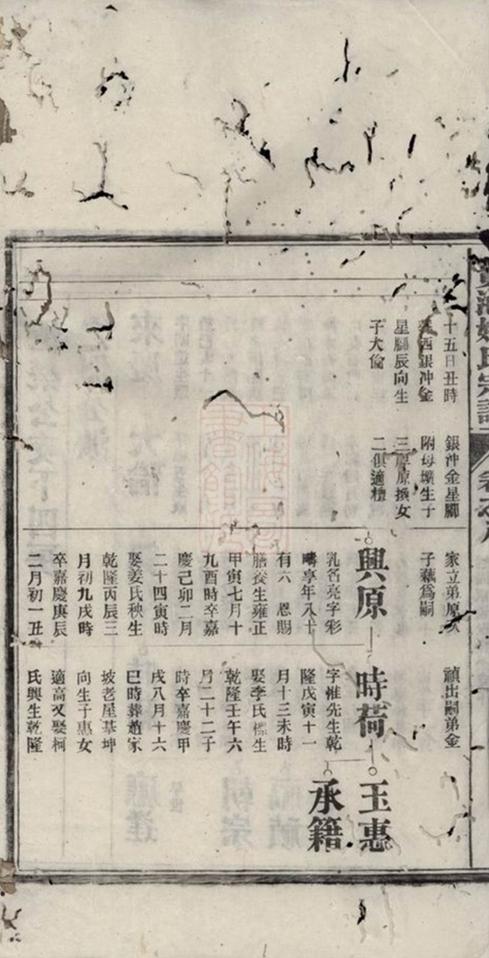 氏宗譜
十五日丑時
酉銀冲金
星腳辰向生
子大倫
銀冲金星腳
附母壙生子
三原原換女
二俱適檀
家立弟原次
子藕為嗣
禎出嗣弟金
興原
乳名亮字彩
疇享年八十
有六 恩賜
膳羙生雍正
甲寅七月十
九酉時卒嘉
慶己卯二月
二十四寅時
娶姜氏秧生
乾隆丙辰三
月初九戌時
卒嘉慶庚辰
二月初一丑
時荷
字惟先生乾
隆戊寅十一
月十三未時
娶李氏標生
乾隆壬午六
月二十二子
時卒嘉慶甲
戌八月十六
巳時葬趙家
坡老屋基坤
向生子惠女
適高又娶柯
氏興生乾隆
玉惠
承籍